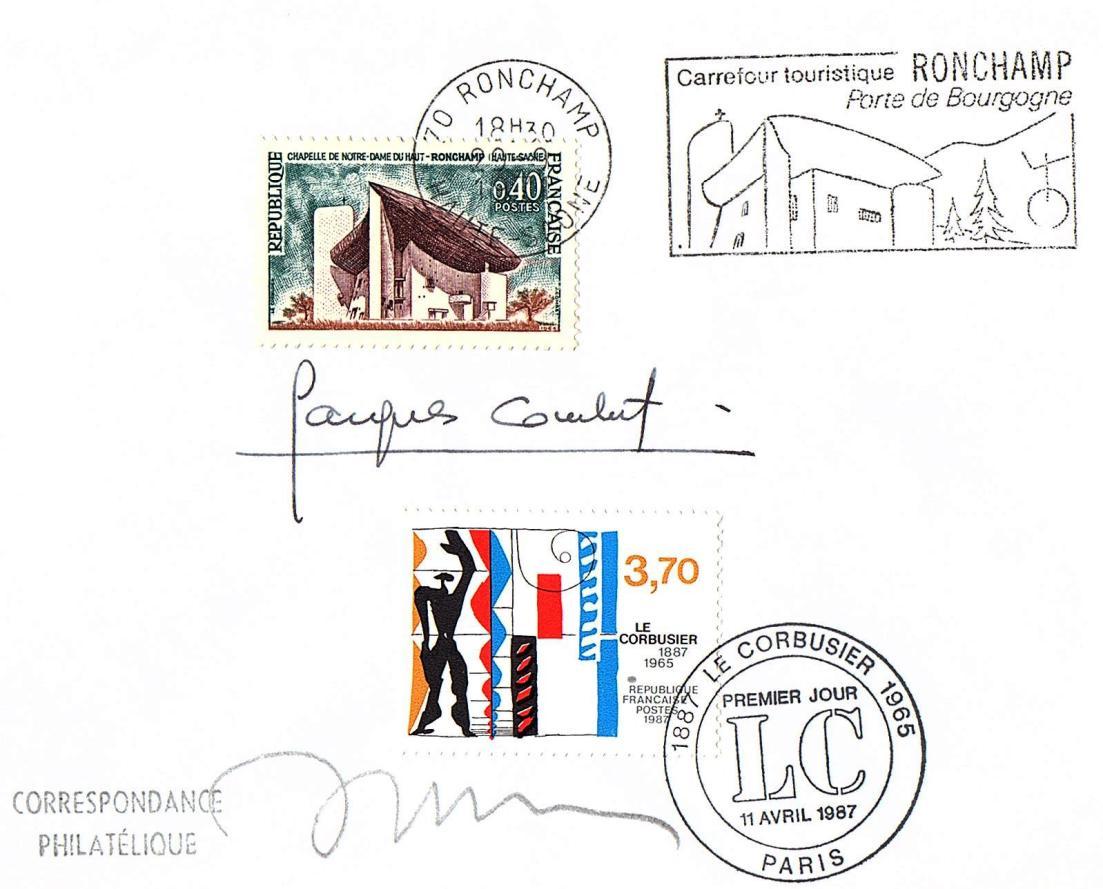 Carrefour touristique RONCHAMP
Porte de Bourgogne
70 RONCHAMP
18H30
HAUTE SAONE
CHAPELLE DE NOTRE-DAME DU HAUT-RONCHAMP (HAUTE-SAONE)
REPUBLIQUE
FRANCAISE
0,40
POSTES
Jacques Combet
3,70
LE
CORBUSIER
1887
1965
REPUBLIQUE
FRANÇAISE
POSTES
1987
1887 LE CORBUSIER 1965
PREMIER JOUR
LC
11 AVRIL 1987
PARIS
CORRESPONDANCE
PHILATÉLIQUE